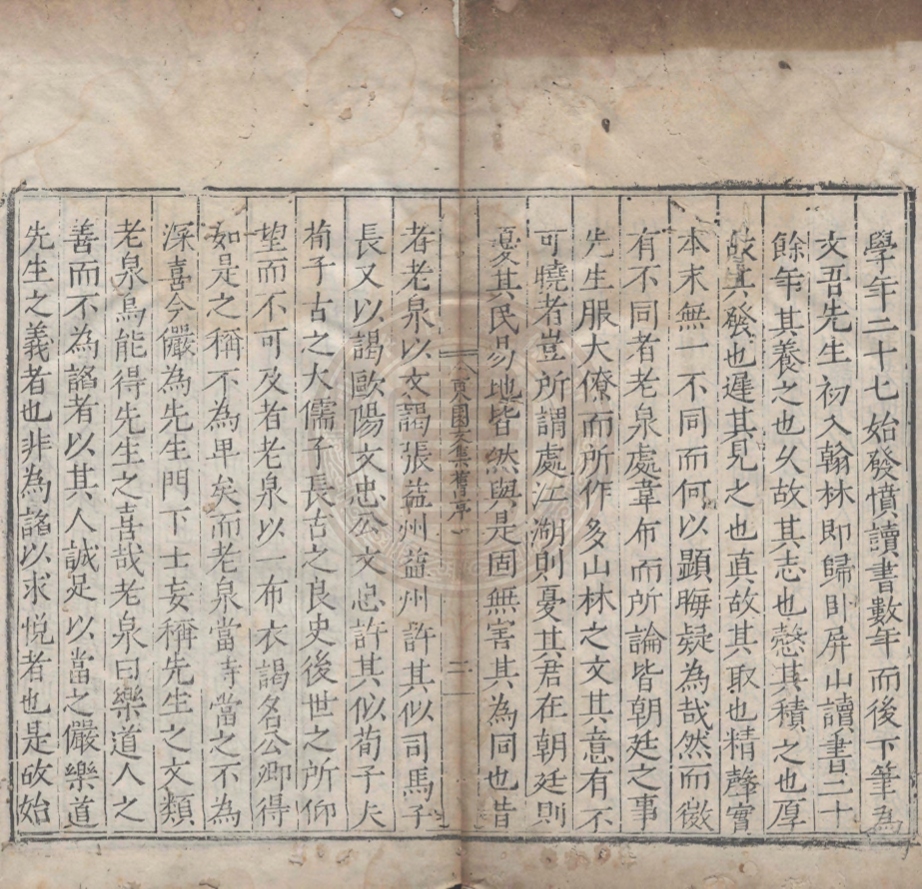 學年二十七始發憤讀書數年而後下筆為
文吾先生初入翰林即歸卧屏山讀書三十
餘年其養之也久故其志也慤其積之也厚
故其發也遲其見之也真故其取也精聲實
本末無一不同而何以顯晦疑為哉然而微
有不同者老泉處韋布而所論皆朝廷之事
先生服大僚而所作多山林之文其意有不
可曉者豈所謂處江湖則憂其君在朝廷則
憂其民易地皆然與是固無害其為同也昔
東園文集舊序
二
者老泉以文謁張益州益州許其似司馬子
長又以謁歐陽文忠公文忠許其似荀子夫
荀子古之大儒子長古之良史後世之所仰
望而不可及者老泉以一布衣謁名公卿得
如是之稱不為卑矣而老泉當時當之不為
深喜今儼為先生門下士妄稱先生之文類
老泉烏能得先生之喜哉老泉曰樂道人之
善而不為諂者以其人誠足以當之儼樂道
先生之義者也非為諂以求悅者也是故始